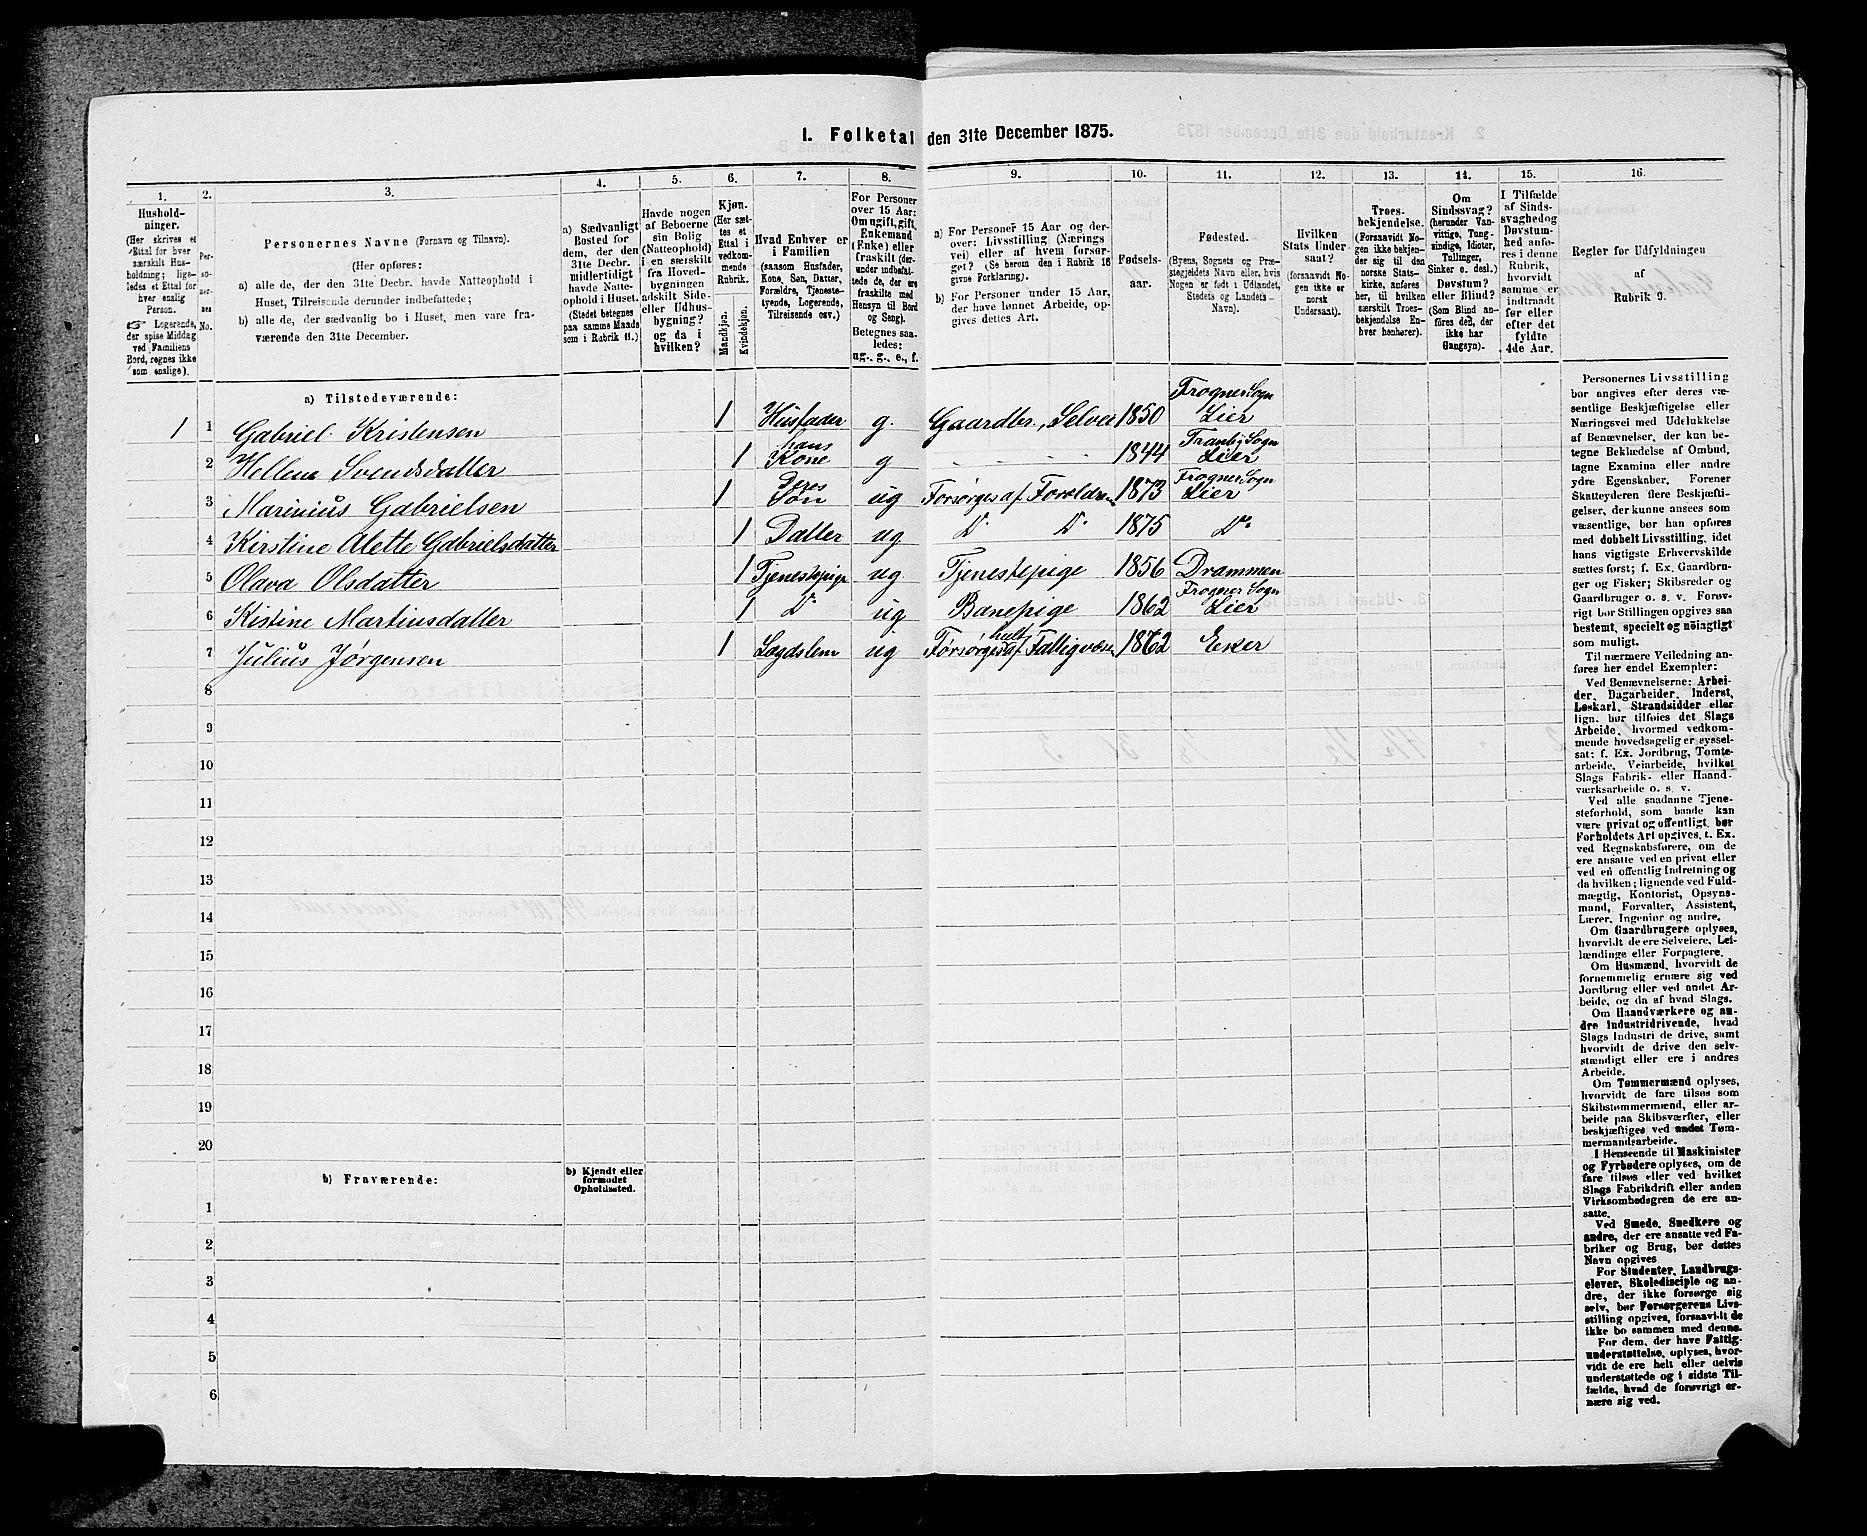 1. Folketal den 31te December 1875.
1. 2. 3. 4. 5. 6. 7. 8. 9. 10. 11. 12. 13. 14. 15. 16.
Hushold-
ninger.
(Her skrives et
Ettal for hver
særskilt Hus-
holdning; lige-
ledes et Ettal for
hver enslig
Person.
☞ Logerende,
der spise Middag
ved Familiens
Bord, regnes ikke
som enslige).
Per-
so-
ner-
nes
No.
Personernes Navne (Fornavn og Tilnavn).
(Her opføres:
a) alle de, der den 31te Decbr. havde Natteophold i
Huset, Tilreisende derunder indbefattede;
b) alle de, der sædvanlig bo i Huset, men vare fra-
værende den 31te December.
a) Sædvanligt
Bosted for
dem, der den
31te Decbr.
midlertidigt
havde Natte-
ophold i Huset.
(Stedet betegnes
paa samme Maade
som i Rubrik 11.)
Havde nogen
af Beboerne
sin Bolig
(Natteophold)
i en særskilt
fra Hoved-
bygningen
adskilt Side-
eller Udhus-
bygning?
og da i
hvilken?
Kjøn.
(Her sæt-
tes et
Ettal i
vedkom-
mende
Rubrik.
Mandkjøn.
Kvindekjøn.
Hvad Enhver er
i Familien
(saasom Husfader,
Kone, Søn, Datter,
Forældre, Tjeneste-
tyende, Logerende,
Tilreisende osv.)
For Personer
over 15 Aar:
Om ugift, gift,
Enkemand
(Enke) eller
fraskilt (der-
under indbefat-
tede de, der ere
fraskilte med
Hensyn til Bord
og Seng).
Betegnes saa-
ledes:
ug., g., e., f.
a) For Personer 15 Aar og der-
over: Livsstilling (Nærings
vei) eller af hvem forsør-
get? (Se herom den i Rubrik 16
givne Forklaring).
b) For Personer under 15 Aar,
der have lønnet Arbeide, op-
gives dettes Art.
Fødsels-
aar.
Fødested.
(Byens, Sognets og Præs-
tegjeldets Navn eller, hvis
Nogen er født i Udlandet,
Stedets og Landets
Navn).
Hvilken
Stats Under-
saat?
(forsaavidt No-
gen ikke er
norsk
Undersaat).
Troes-
bekjendelse.
(Forsaavidt No-
gen ikke bekjen-
der sig til den
norske Stats-
kirke, anføres
her, til hvilken
særskilt Troes-
bekjendelse En-
hver henhører).
Om
Sindssvag?
(herunder Van-
vittige, Tung-
sindige, Idioter,
Tullinger,
Sinker o. desl.)
Døvstum?
eller Blind?
(Som Blind an-
føres den, der
ikke har
Gangsyn).
I Tilfælde
af Sinds-
svaghed og
Døvstum-
hed anfø-
res i denne
Rubrik,
hvorvidt
samme er
indtraadt
før eller
efter det
fyldte
4de Aar.
Regler for Udfyldningen
af
Rubrik 9.
a) Tilstedeværende:
1 1 Gabriel Kristensen 1 Husfader g. Gaardbr., Selveier 1850 Frogner Sogn Lier
2 Hellene Svendsdatter 1 hans Kone g - - - - 1844 Tranby Sogn Lier
3 Marinius Gabrielsen 1 Deres Søn ug Forsørges af Foreldrene 1873 Frogner Sogn Lier
4 Kirstine Alette Gabrielsdatter 1 Datter ug Do Do 1875 Do
5 Olava Olsdatter 1 Tjenestepige ug Tjenestepige 1856 Drammen
6 Kistine Martinusdatter 1 Do ug Barnepige 1862 Frogner Sogn Lier
7 Julius Jørgensen 1 Lægdslem ug Forsørges helt af Fattigvæsen 1862 Eker
8
9
10
11
12
13
14
15
16
17
18
19
20
b) Fraværende:
b) Kjendt eller
formodet
Opholdssted.
1
2
3
4
5
6
Personernes Livsstilling
bør angives efter deres væ-
sentlige Beskjæftigelse eller
Næringsvei med Udelukkelse
af Benævnelser, der kun be-
tegne Beklædelse af Ombud,
tagne Examina eller andre
ydre Egenskaber. Forener
Skatteyderen flere Beskjæfti-
gelser, der kunne ansees som
væsentlige, bør han opføres
med dobbelt Livsstilling, idet
hans vigtigste Erhvervskilde
sættes først; f. Ex. Gaardbru-
ger og Fisker; Skibsreder og
Gaardbruger o. s. v. Forøv-
rigt bør Stillingen opgives saa
bestemt, specielt og nøiagtigt
som muligt.
Til nærmere Veiledning an-
føres her endel Exempler:
Ved Benævnelserne: Arbei-
der, Dagarbeider, Inderst,
Løskarl, Strandsidder eller
lign. bør tilføies det Slags
Arbeide, hvormed vedkom-
mende hovedsagelig er syssel-
sat; f. Ex. Jordbrug, Tomte-
arbeide, Veiarbeide, hvilket
Slags Fabrik- eller Haand-
værksarbeide o. s. v.
Ved alle saadanne Tjene-
steforhold, som baade kan
være privat og offentligt, bør
Forholdets Art opgives, t. Ex.
ved Regnskabsførere, om de
ere ansatte ved en privat eller
ved en offentlig Indretning og
da hvilken; lignende ved Fuld-
mægtig, Kontorist, Opsyns-
mand, Forvalter, Assistent,
Lærer, Ingeniør og andre.
Om Gaardbrugere oplyses,
hvorvidt de ere Selveiere, Lei-
lændinge eller Forpagtere.
Om Husmænd, hvorvidt de
fornemmelig ernære sig ved
Jordbrug eller ved andet Ar-
beide, og da af hvad Slags.
Om Haandværkere og an-
dre Industridrivende, hvad
Slags Industri de drive, samt
hvorvidt de drive den selv-
stændigt eller ere i andres
Arbeide.
Om Tømmermænd oplyses,
hvorvidt de fare tilsøs som
Skibstømmermænd, eller ar-
beide paa Skibsværfter, eller
beskjæftiges ved andet Tøm-
mermandsarbeide.
I Henseende til Maskinister
og Fyrbødere oplyses, om de
fare tilsøs eller ved hvilket
Slags Fabrikdrift eller anden
Virksomhedsgren de ere an-
satte.
Ved Smede, Snedkere og
andre, der ere ansatte ved Fa-
briker og Brug, bør dettes
Navn opgives
For Studenter, Landbrugs-
elever, Skoledisciple og an-
dre, der ikke forsørge sig
selv, bør Forsørgerens Livs-
stilling opgives, forsaavidt de
ikke bo sammen med denne.
For dem, der have Fattig-
understøttelse, oplyses, hvor-
vidt de ere helt eller delvis
understøttede og i sidste Til-
fælde, hvad de forøvrigt er-
nære sig ved.